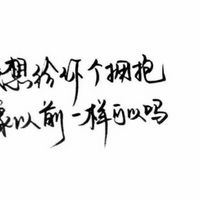 想给你个拥抱
像以前一样可以吗